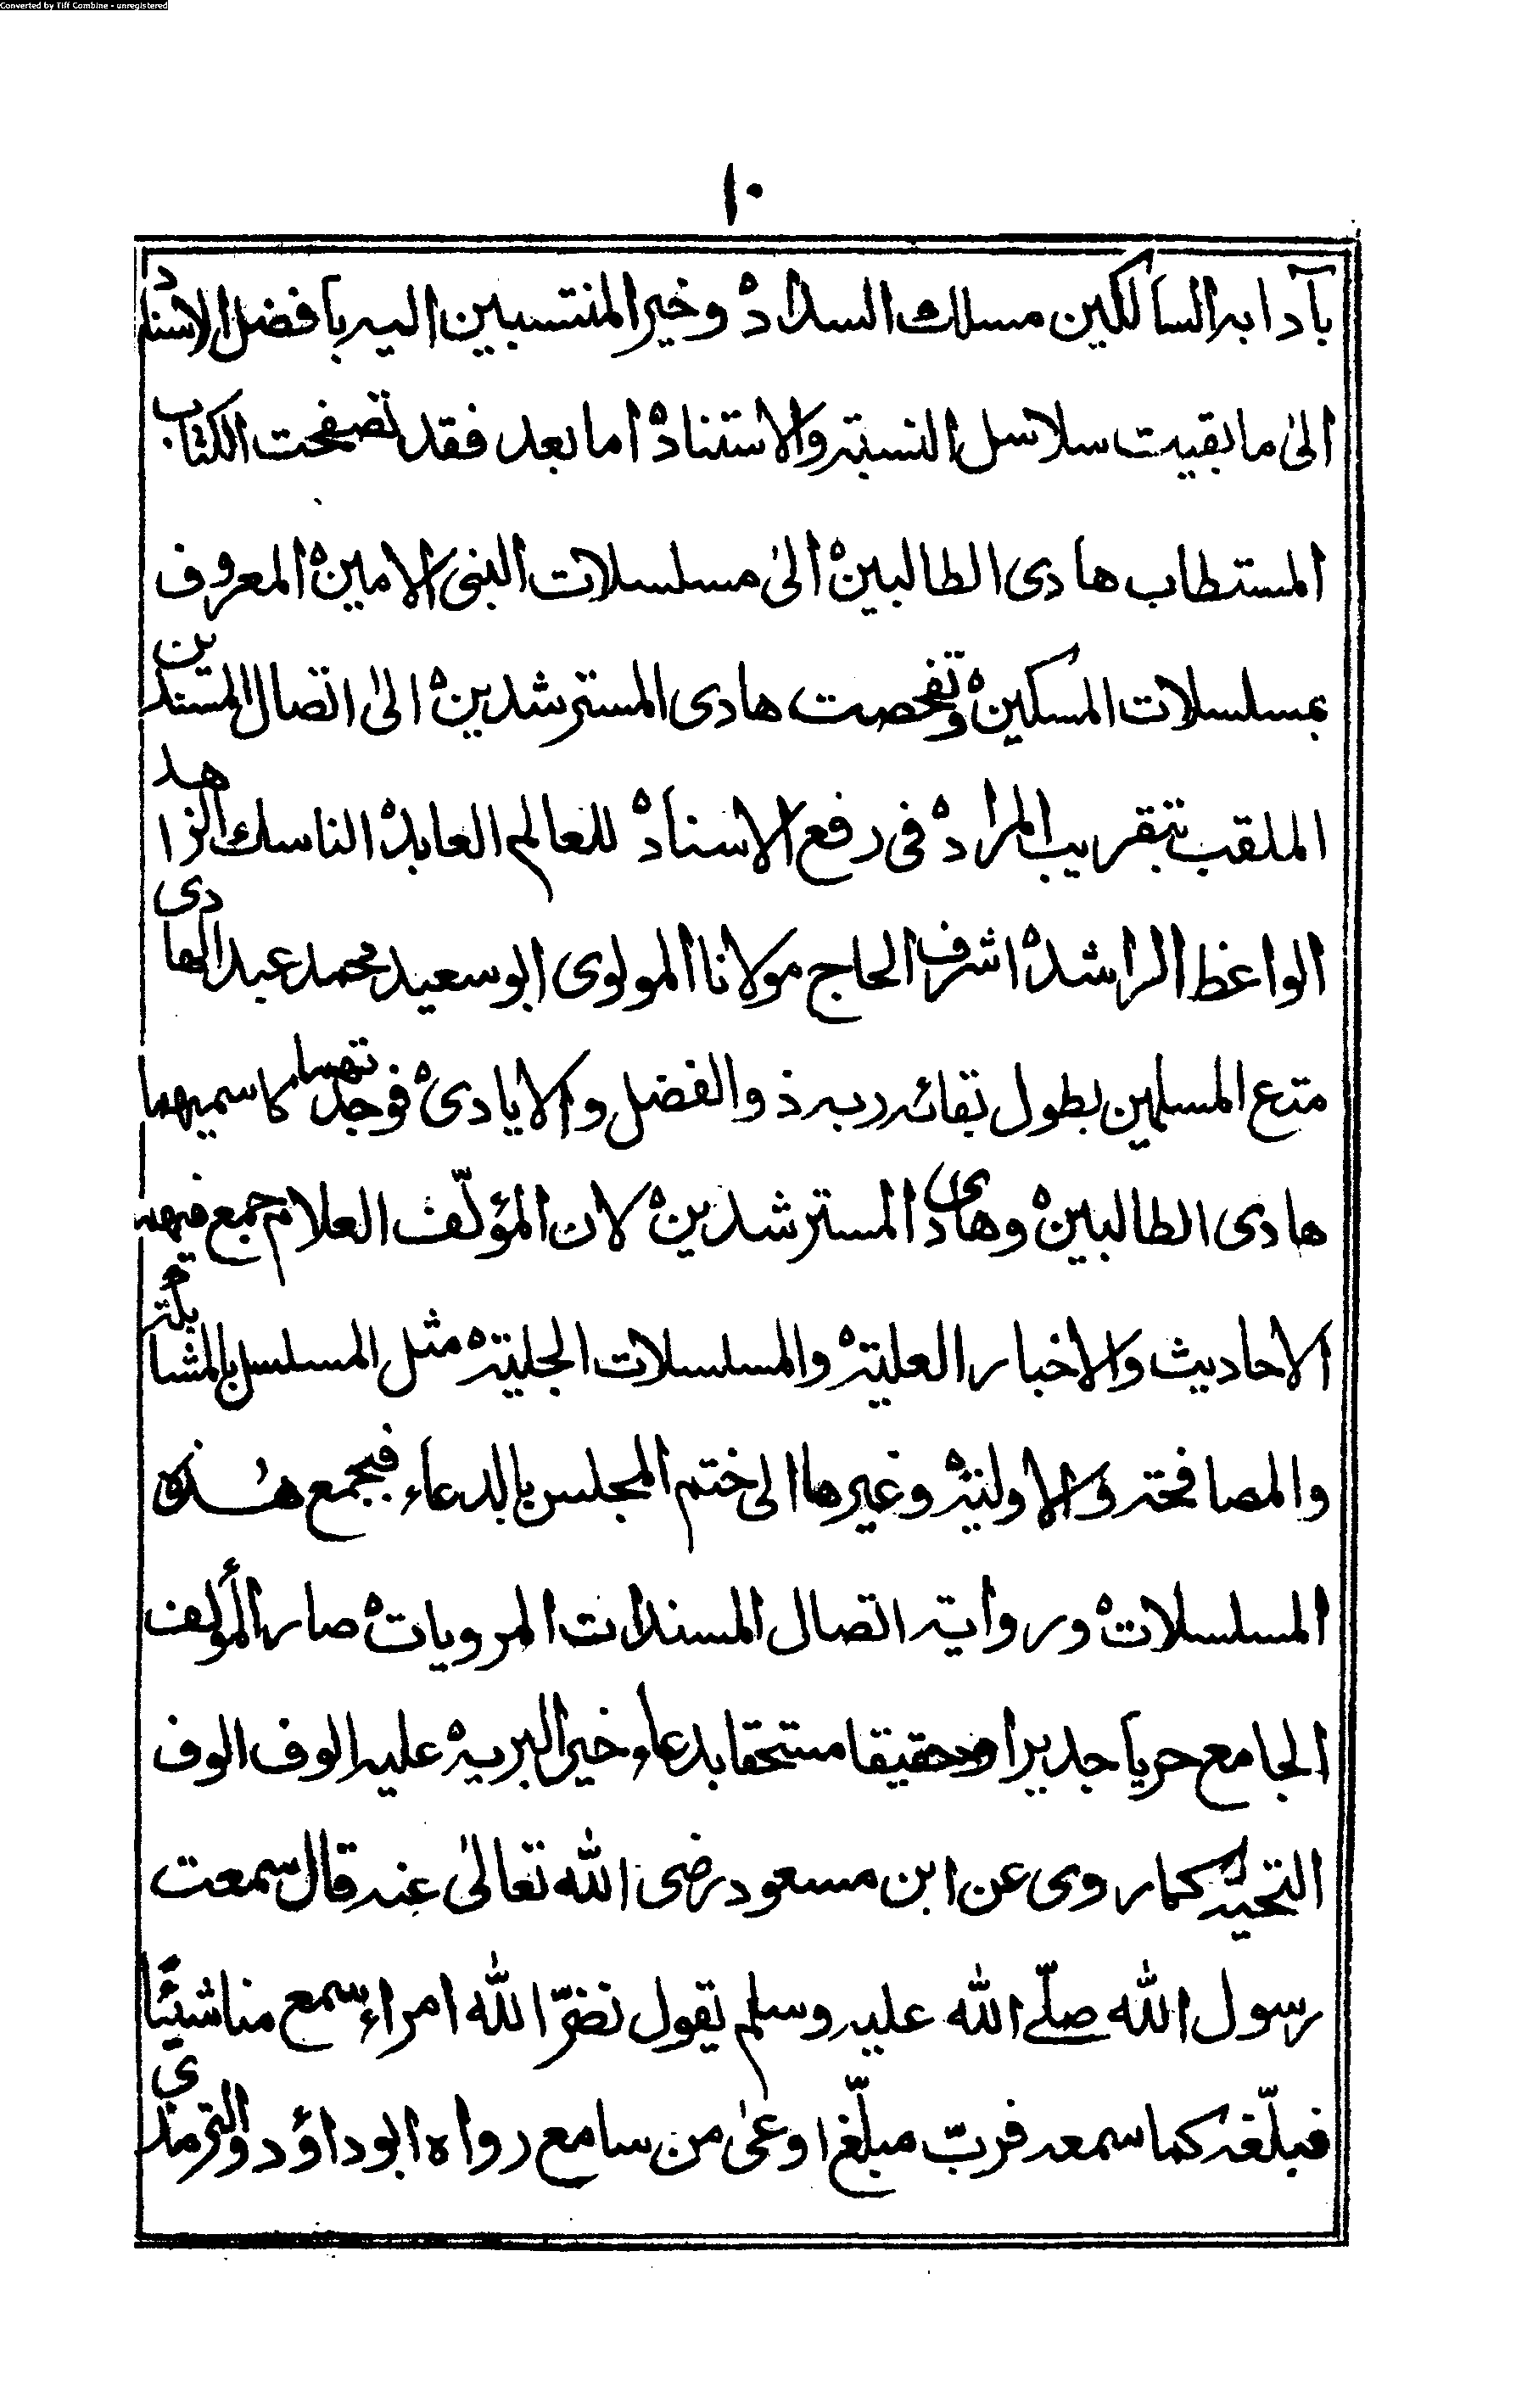 Converted by Tiff Combine - unregistered
١٠
بآدابه السالكين مسلك السداد ه وخير المنتسبين اليه بافضل الاسناد
الىٰ ما بقيت سلاسل النسبة والاستناد ه اما بعد فقد تصفحت الكتاب
المستطاب هادى الطالبين ه الىٰ مسلسلات النبى الامين ه المعروف
بمسلسلات المسكين ه وتفحصت هادى المسترشدين ه الىٰ اتصال المسندين
الملقب بتقريب المراد ه فى رفع الاسناد ه للعالم العابد ه الناسك الزاهد
الواعظ الراشد ه اشرف الحاج مولانا المولوى ابو سعيد محمد عبد الهادى
متع المسلمين بطول بقائه ربه ذو الفضل والايادى ه فوجدتهما كاسميهما
هادى الطالبين ه وهادى المسترشدين ه لان المؤلّف العلام جمع فيهما
الاحاديث والاخبار العلية ه والمسلسلات الجلية ه مثل المسلسل بالمشابكة
والمصافحة والاولية ه وغيرها الى ختم المجلس بالدعاء فبجمع هٰذه
المسلسلات ه ورواية اتصال المسندات المرويات ه صار المؤلف
الجامع حريا جديرا وحقيقا مستحقا بدعاء خير البريه ه عليه الوف الوف
التحيّة كما روى عن ابن مسعود رضى الله تعالىٰ عنه قال سمعت
رسول الله صلّے الله عليه وسلم يقول نضّر الله امراء سمع منا شيئًا
فبلّغه كما سمعه فربّ مبلّغ اوعىٰ من سامع رواه ابو داؤد والترمذي